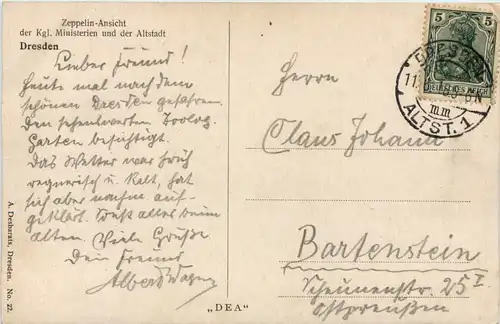 Zeppelin-Ansicht
der Kgl. Ministerien und der Altstadt
Dresden
Lieber Freund!
Heute mal nach dem
schönen Dresden gefahren.
Den sehenswerten Zoolog.
Garten besichtigt.
Das Wetter war früh
regnerisch u. kalt, hat
sich aber nachm. auf-
geklärt. Sonst alles beim
alten. Viele Grüße
Dein Freund
Albert Wagner
A. Denharts, Dresden. No. 22.
„DEA"
5 5
DEUTSCHES REICH
DRESDEN
ALTST. 1
Herrn
Claus Johand
Bartenstein
Scheunenstr. 25 I
Ostpreußen